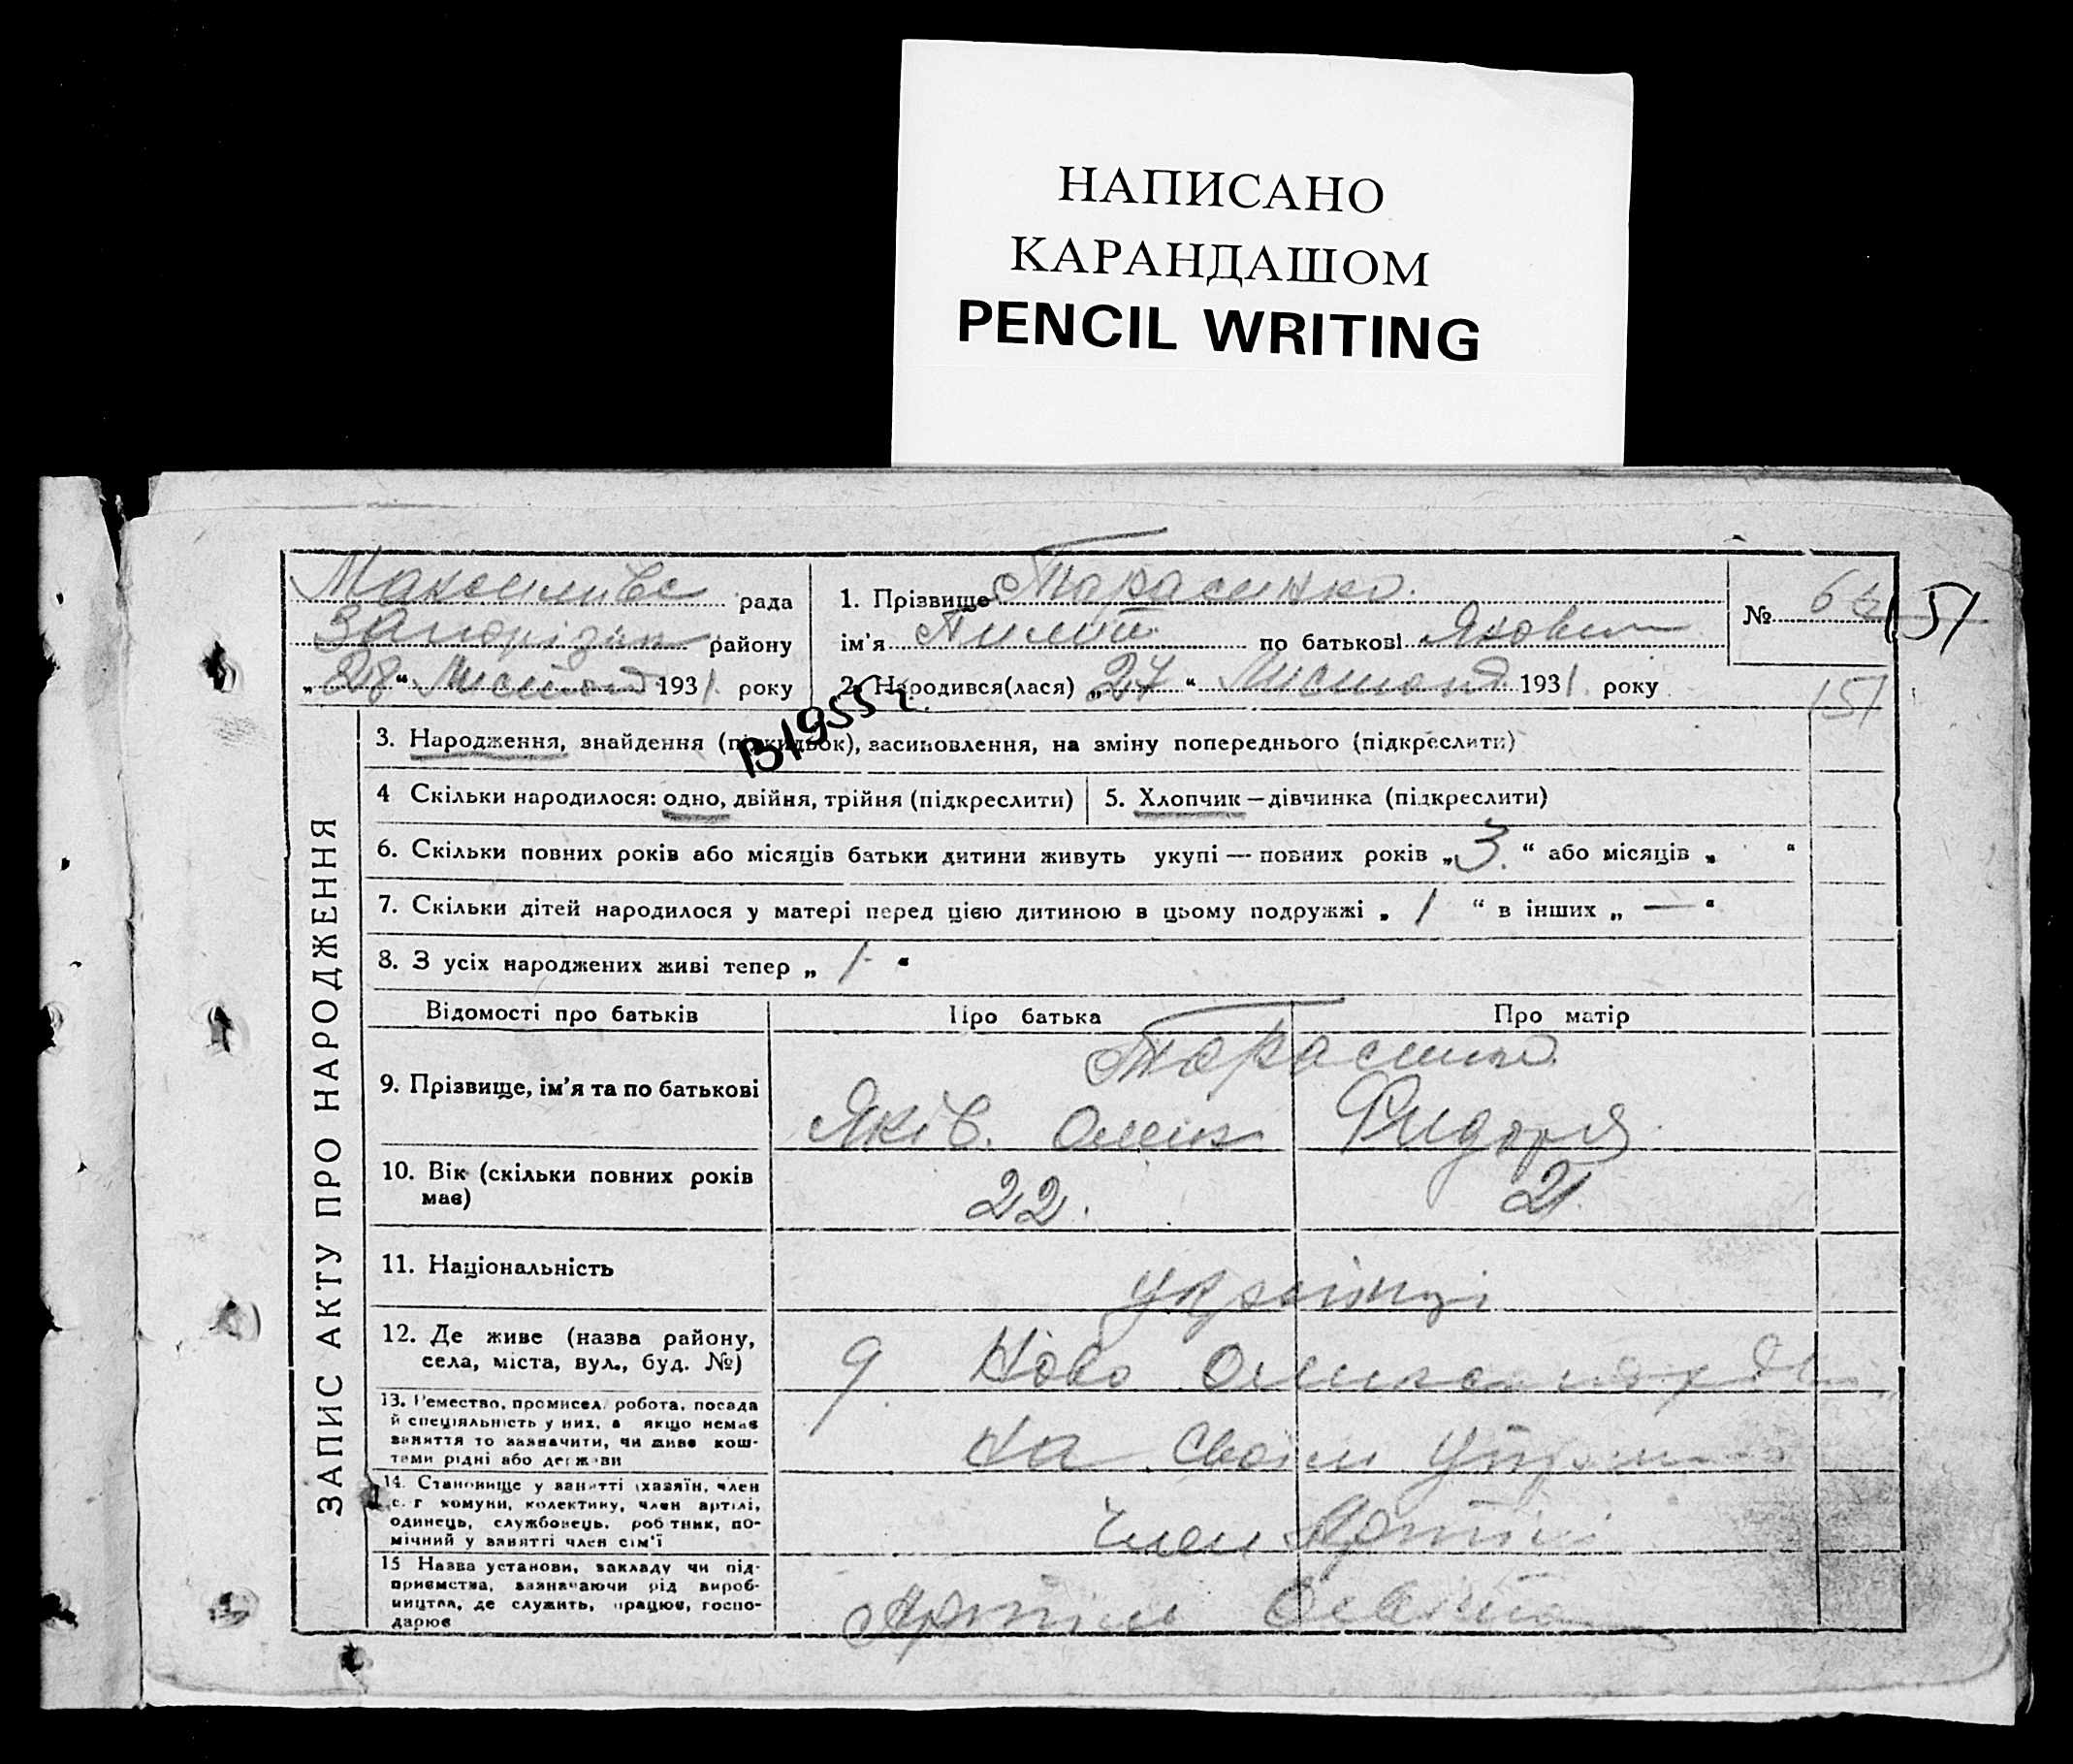 НАПИСАНО
КАРАНДАШОМ
PENCIL WRITING
рада
району
„28“ 1931 року
1. Прізвище Тарасенко
ім'я Пилип по батькові Якович
2. Народився(лася) „27“ Листопад 1931 року
№ 151
151
В 1955 г.
ЗАПИС АКТУ ПРО НАРОДЖЕННЯ
3. Народження, знайдення (підкидьок), засиновлення, на зміну попереднього (підкреслити)
4 Скільки народилося: одно, двійня, трійня (підкреслити)
5. Хлопчик — дівчинка (підкреслити)
6. Скільки повних років або місяців батьки дитини живуть укупі — повних років „3.“ або місяців „ “
7. Скільки дітей народилося у матері перед цією дитиною в цьому подружжі „1“ в інших „—“
8. З усіх народжених живі тепер „1.“
Відомості про батьків
Про батька
Про матір
9. Прізвище, ім'я та по батькові
Яків.
10. Вік (скільки повних років має)
22.
21.
11. Національність
українці
12. Де живе (назва району, села, міста, вул., буд. №)
Ново
13. Ремество, промисел, робота, посада й спеціяльність у них, а якщо немає заняття то зазначити, чи живе коштами рідні або держави
на своїм
14. Становище у занятті (хазяїн, член с. г комуни, колективу, член артілі, одинець, службовець, робітник, помічний у занятті член сім'ї
член Артілі
15 Назва установи, закладу чи підприємства, зазначаючи рід виробництва, де служить, працює, господарює